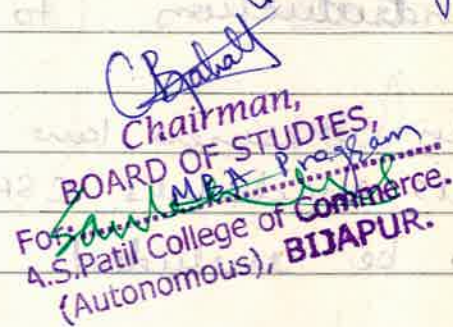 Chairman,
BOARD OF STUDIES,
For MBA Program
A.S.Patil College of Commerce.
(Autonomous), BIJAPUR.